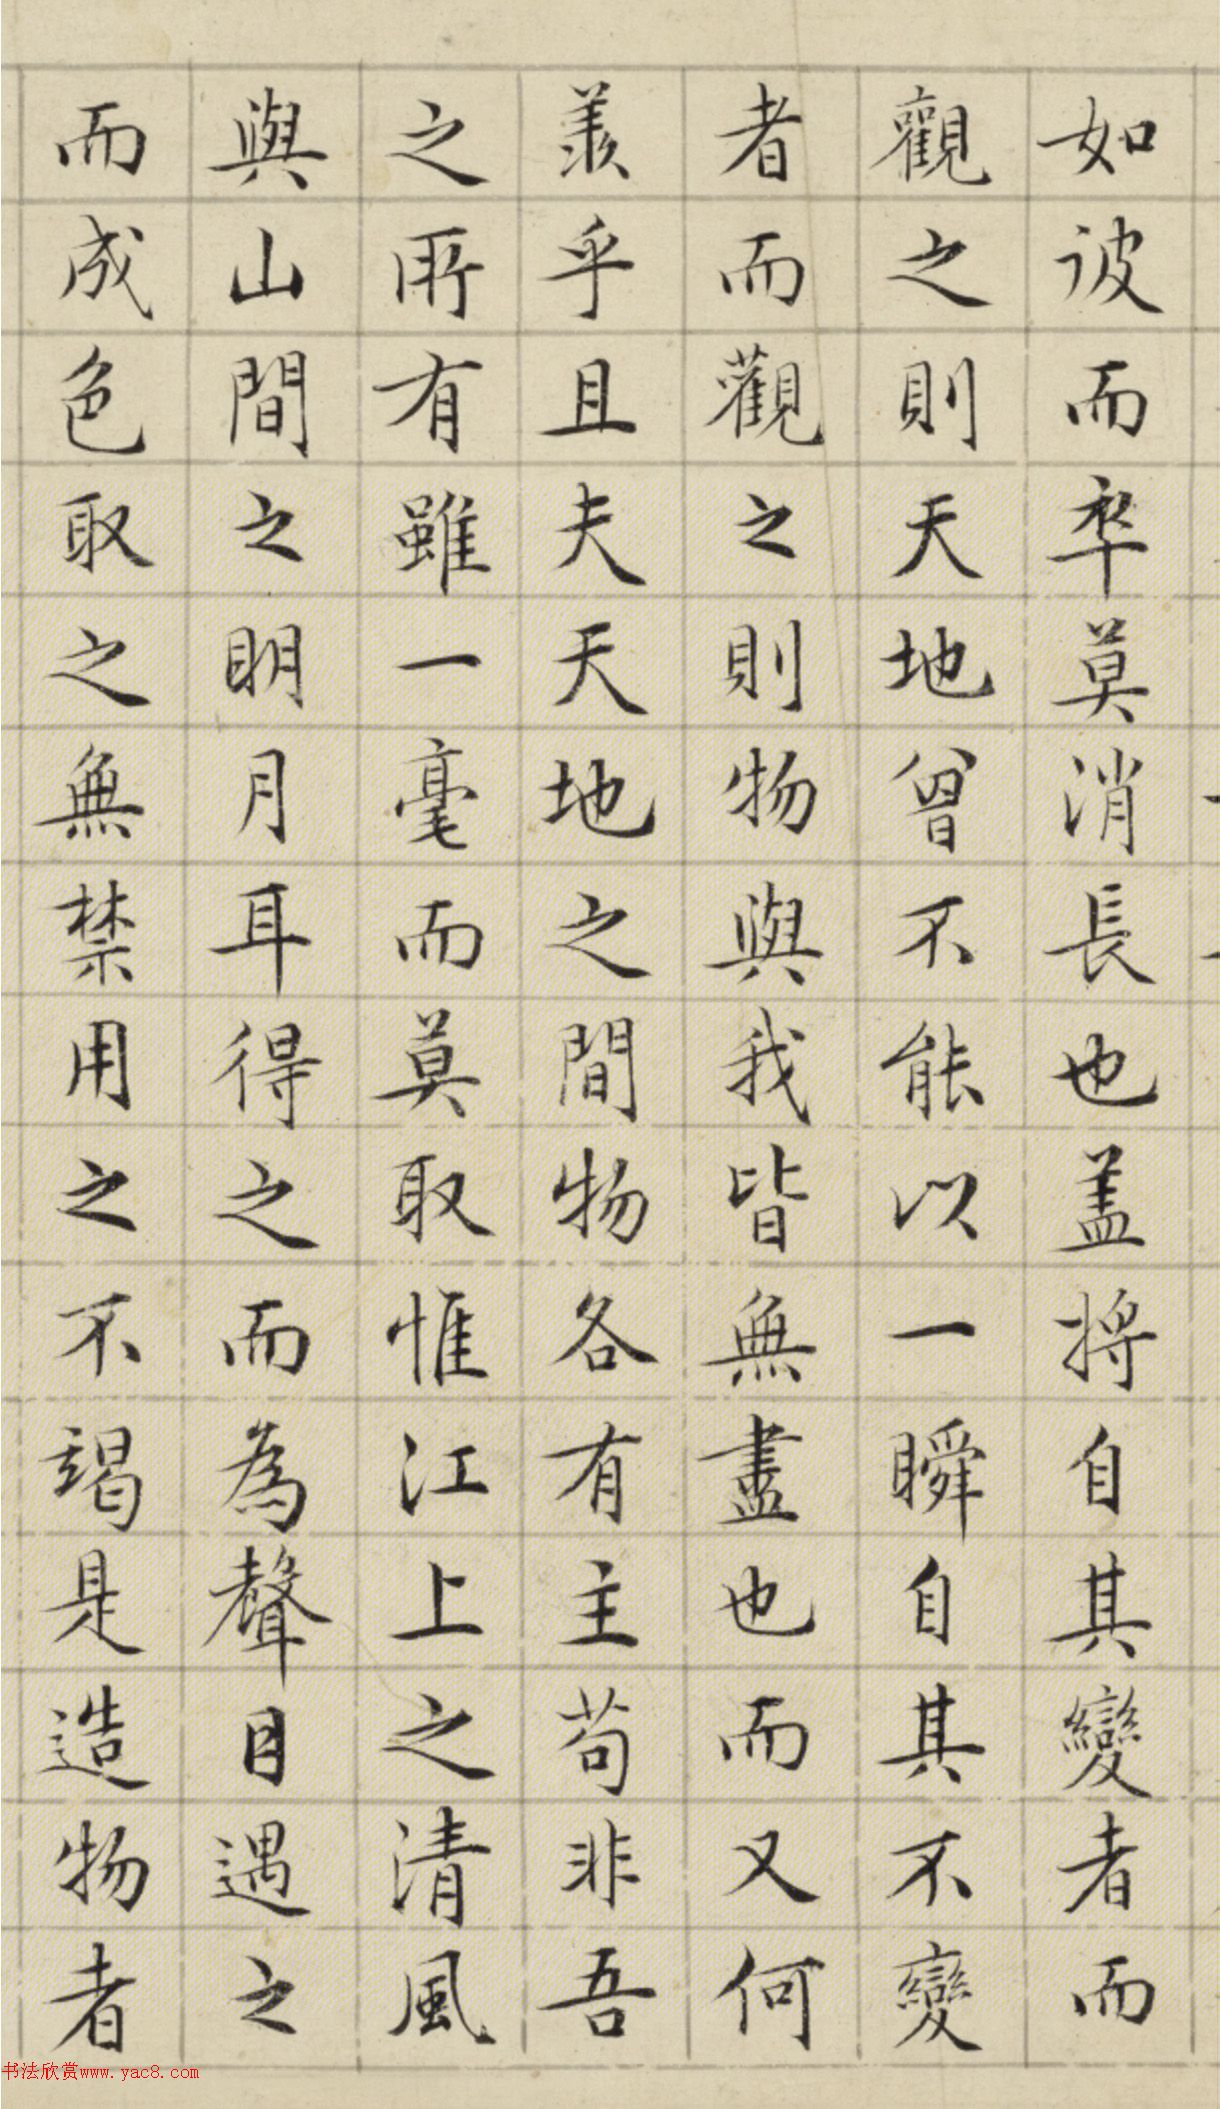 如彼而卒莫消長也盖將自其變者而
觀之則天地曾不能以一瞬自其不變
者而觀之則物與我皆無盡也而又何
羨乎且夫天地之間物各有主苟非吾
之所有雖一毫而莫取惟江上之清風
與山間之明月耳得之而為聲目遇之
而成色取之無禁用之不竭是造物者
书法欣赏www.yac8.com